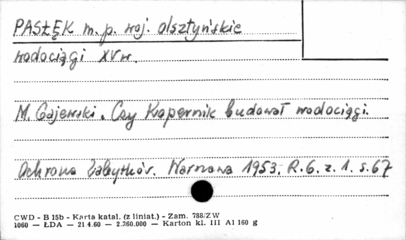 PASŁĘK m. p. woj. olsztyńskie
wodociągi XV w.
M. Gajewski. Czy Kopernik budował wodociągi.
Ochrona Zabytków. Warszawa 1953. R. 6. z. 1. s. 67
CWD - B 15b - Karta katal. (z liniat.) - Zam. 788/ZW
1060 — ŁDA — 21 4.60 — 2.760.000 — Karton kl. III A1 160 g